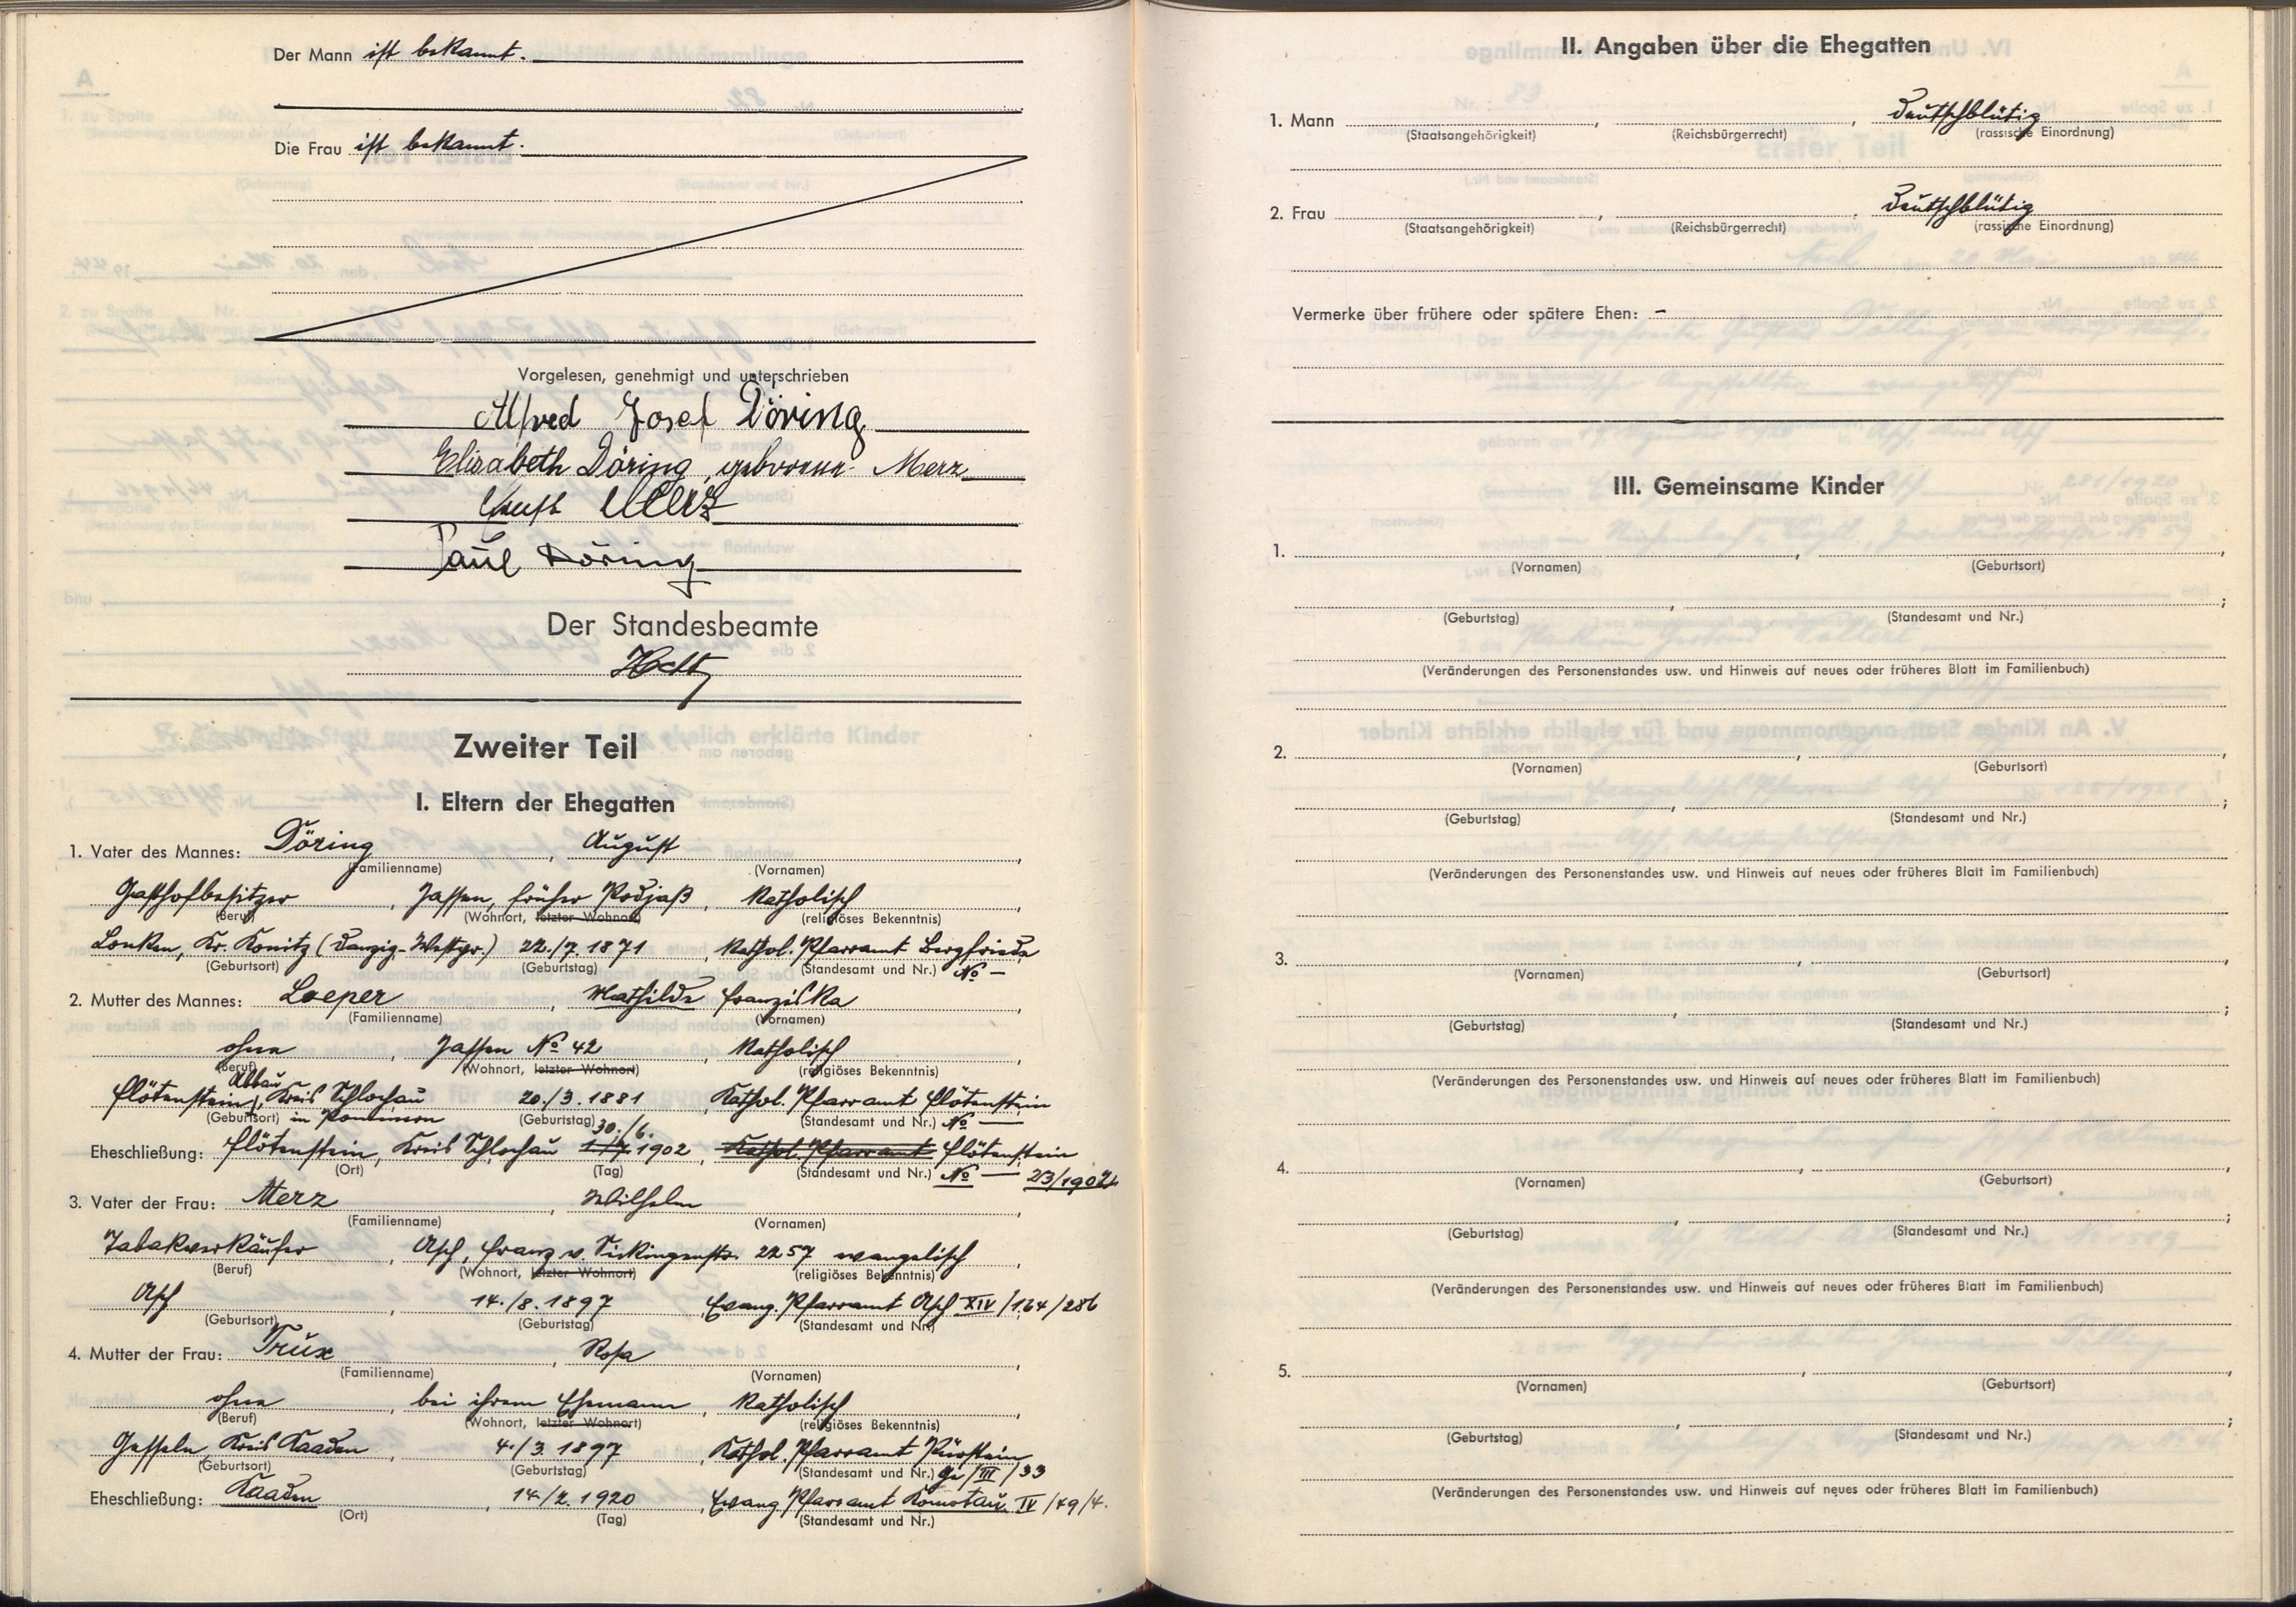 Der Mann ist bekannt.
Die Frau ist bekannt.
Vorgelesen, genehmigt und unterschrieben
Alfred Josef Döring
Elisabeth Döring, geborene Merz
Merz
Paul Döring
Der Standesbeamte
Zweiter Teil
I. Eltern der Ehegatten
1. Vater des Mannes: Döring, August,
(Familienname) (Vornamen)
Gasthofbesitzer, Jassen, früher Podjaß, katholisch,
(Beruf) (Wohnort, letzter Wohnort) (religiöses Bekenntnis)
Lonken, Kr. Konitz (Danzig-Westpr.) 22./7. 1871, kathol. Pfarramt Bergfriede
(Geburtsort) (Geburtstag) (Standesamt und Nr.) No —
2. Mutter des Mannes: Loeper, Mathilde Franziska,
(Familienname) (Vornamen)
ohne, Jassen No 42, katholisch,
(Beruf) (Wohnort, letzter Wohnort) (religiöses Bekenntnis)
Abbau
Flötenstein, Kreis Schlochau 20./3. 1881, Kathol. Pfarramt Flötenstein
(Geburtsort) in Pommern (Geburtstag) (Standesamt und Nr.) No —
30./6.
Eheschließung: Flötenstein, Kreis Schlochau 1./7. 1902, Kathol. Pfarramt Flötenstein
(Ort) (Tag) (Standesamt und Nr.) No — 23/1902
3. Vater der Frau: Merz, Wilhelm,
(Familienname) (Vornamen)
Tabakverkäufer, Asch, Franz v. Sickingenstr. 2257 evangelisch,
(Beruf) (Wohnort, letzter Wohnort) (religiöses Bekenntnis)
Asch, 14./8. 1897, Evang. Pfarramt Asch XIV/164/286
(Geburtsort) (Geburtstag) (Standesamt und Nr.)
4. Mutter der Frau: Trux, Rosa,
(Familienname) (Vornamen)
ohne, bei ihrem Ehemann, katholisch,
(Beruf) (Wohnort, letzter Wohnort) (religiöses Bekenntnis)
Gesseln, Kreis Kaaden, 4./3. 1897, Kathol. Pfarramt Pürstein
(Geburtsort) (Geburtstag) (Standesamt und Nr.) /III/33
Eheschließung: Kaaden, 14/2. 1920, Evang. Pfarramt Komotau IV/49/4.
(Ort) (Tag) (Standesamt und Nr.)
II. Angaben über die Ehegatten
1. Mann , , deutschblütig
(Staatsangehörigkeit) (Reichsbürgerrecht) (rassische Einordnung)
2. Frau , , deutschblütig
(Staatsangehörigkeit) (Reichsbürgerrecht) (rassische Einordnung)
Vermerke über frühere oder spätere Ehen: –
III. Gemeinsame Kinder
1. , ,
(Vornamen) (Geburtsort)
, ;
(Geburtstag) (Standesamt und Nr.)
(Veränderungen des Personenstandes usw. und Hinweis auf neues oder früheres Blatt im Familienbuch)
2. , ,
(Vornamen) (Geburtsort)
, ;
(Geburtstag) (Standesamt und Nr.)
(Veränderungen des Personenstandes usw. und Hinweis auf neues oder früheres Blatt im Familienbuch)
3. , ,
(Vornamen) (Geburtsort)
, ;
(Geburtstag) (Standesamt und Nr.)
(Veränderungen des Personenstandes usw. und Hinweis auf neues oder früheres Blatt im Familienbuch)
4. , ,
(Vornamen) (Geburtsort)
, ;
(Geburtstag) (Standesamt und Nr.)
(Veränderungen des Personenstandes usw. und Hinweis auf neues oder früheres Blatt im Familienbuch)
5. , ,
(Vornamen) (Geburtsort)
, ;
(Geburtstag) (Standesamt und Nr.)
(Veränderungen des Personenstandes usw. und Hinweis auf neues oder früheres Blatt im Familienbuch)